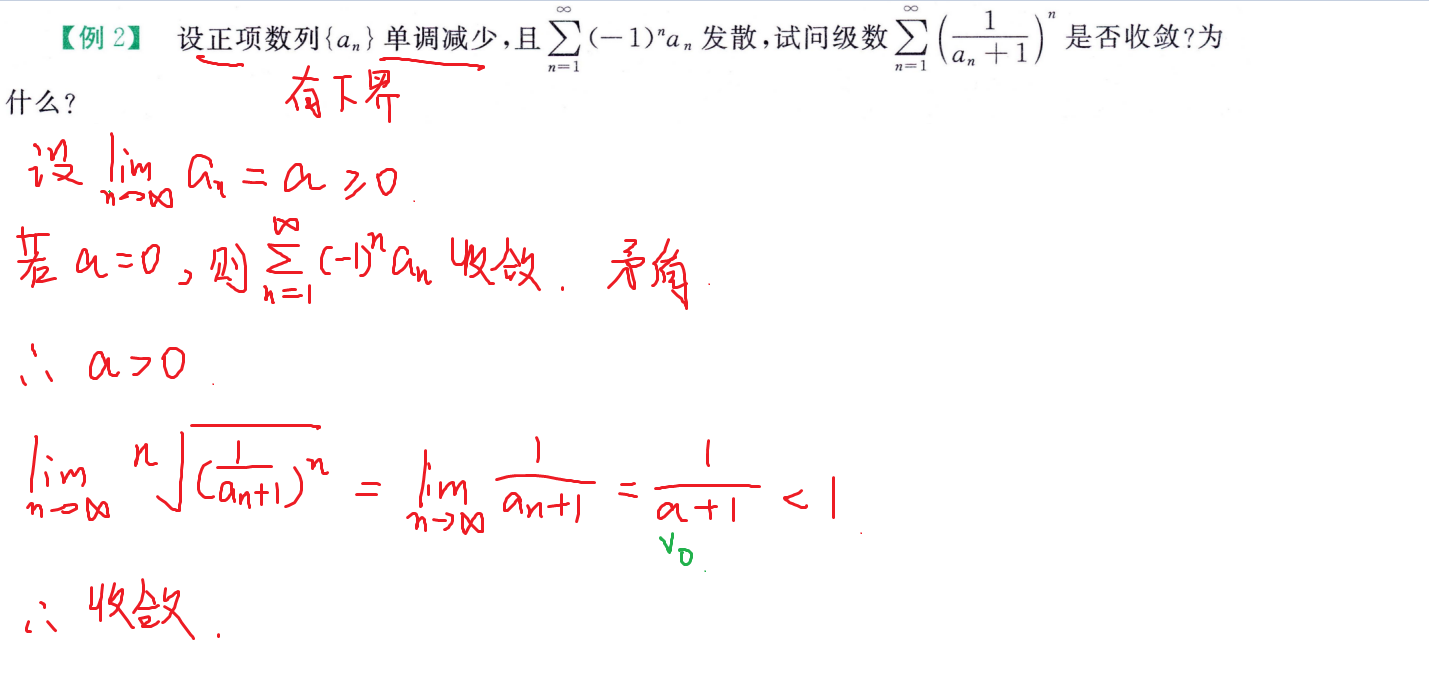 【例 2】 设正项数列{aₙ}单调减少,且 ∑_{n=1}^{∞} (−1)ⁿaₙ 发散,试问级数 ∑_{n=1}^{∞} (1/(aₙ+1))ⁿ 是否收敛?为
有下界
什么?
设 lim_{n→∞} aₙ = a ≥ 0
若 a=0, 则 ∑_{n=1}^{∞} (-1)ⁿaₙ 收敛. 矛盾.
∴ a>0.
lim_{n→∞} ⁿ√((1/(aₙ+1))ⁿ) = lim_{n→∞} 1/(aₙ+1) = 1/(a+1) < 1
∨0
∴ 收敛.